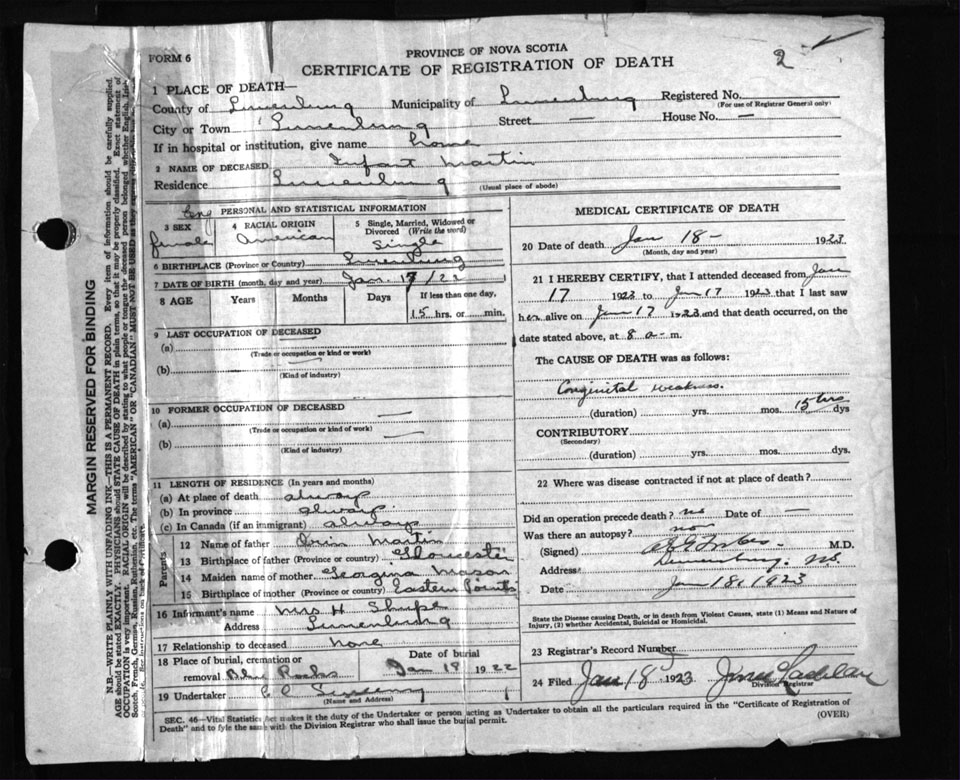 2
FORM 6
PROVINCE OF NOVA SCOTIA
CERTIFICATE OF REGISTRATION OF DEATH
1 PLACE OF DEATH—
County of Lunenburg Municipality of Lunenburg Registered No.
(For use of Registrar General only)
City or Town Lunenburg Street — House No. —
If in hospital or institution, give name home
2 NAME OF DECEASED Infant Martin
Residence Lunenburg (Usual place of abode)
PERSONAL AND STATISTICAL INFORMATION
Eng
3 SEX 4 RACIAL ORIGIN 5 Single, Married, Widowed or Divorced (Write the word)
female American Single
6 BIRTHPLACE (Province or Country) Lunenburg
7 DATE OF BIRTH (month, day and year) Jan. 17/22
8 AGE Years Months Days If less than one day,
15 hrs. or min.
9 LAST OCCUPATION OF DECEASED
(a) —
(Trade or occupation or kind of work)
(b) —
(Kind of industry)
10 FORMER OCCUPATION OF DECEASED —
(a)
(Trade or occupation or kind of work)
(b) —
(Kind of industry)
11 LENGTH OF RESIDENCE (In years and months)
(a) At place of death always
(b) In province always
(c) In Canada (if an immigrant) always
Parents
12 Name of father Orin Martin
13 Birthplace of father (Province or country) Gloucester
14 Maiden name of mother Georgina Mason
15 Birthplace of mother (Province or country) Eastern Points
16 Informant's name Mrs H Shupe
Address Lunenburg
17 Relationship to deceased none
18 Place of burial, cremation or Date of burial
removal Blue Rocks Jan 19 1922
19 Undertaker
(Name and Address)
MEDICAL CERTIFICATE OF DEATH
20 Date of death Jan 18 – 1923
(Month, day and year)
21 I HEREBY CERTIFY, that I attended deceased from Jan
17 1923 to Jan 17 1923 that I last saw
her alive on Jan 17 1923 and that death occurred, on
date stated above, at 8 a– m.
The CAUSE OF DEATH was as follows:
Congenital weakness.
(duration) yrs. mos. 15 hrs dys
CONTRIBUTORY
(Secondary)
(duration) yrs. mos. dys.
22 Where was disease contracted if not at place of death?
Did an operation precede death? no Date of —
Was there an autopsy? no
(Signed) M.D.
Address Lunenburg. NS
Date Jan 18, 1923
State the disease causing Death, or in death from Violent Causes, state (1) Means and Nature of
Injury, (2) whether Accidental, Suicidal or Homicidal.
23 Registrar's Record Number
24 Filed Jan 18 1923
Division Registrar
SEC. 46—Vital Statistics Act makes it the duty of the Undertaker or person acting as Undertaker to obtain all the particulars required in the "Certificate of Registration of
Death" and to fyle the same with the Division Registrar who shall issue the burial permit.
(OVER)
MARGIN RESERVED FOR BINDING
N.B.—WRITE PLAINLY WITH UNFADING INK—THIS IS A PERMANENT RECORD. Every item of information should be carefully supplied.
AGE should be stated EXACTLY. PHYSICIANS should STATE CAUSE OF DEATH in plain terms, so that it may be properly classified. Exact statement of
OCCUPATION is very important. RACIAL ORIGIN will be described by stating to what people or tongue the deceased person belonged whether English, Irish,
Scotch, French, German, Russian, Ruthenian, etc. The terms "AMERICAN" OR "CANADIAN" MUST NOT BE USED
See instructions on back of Certificate.